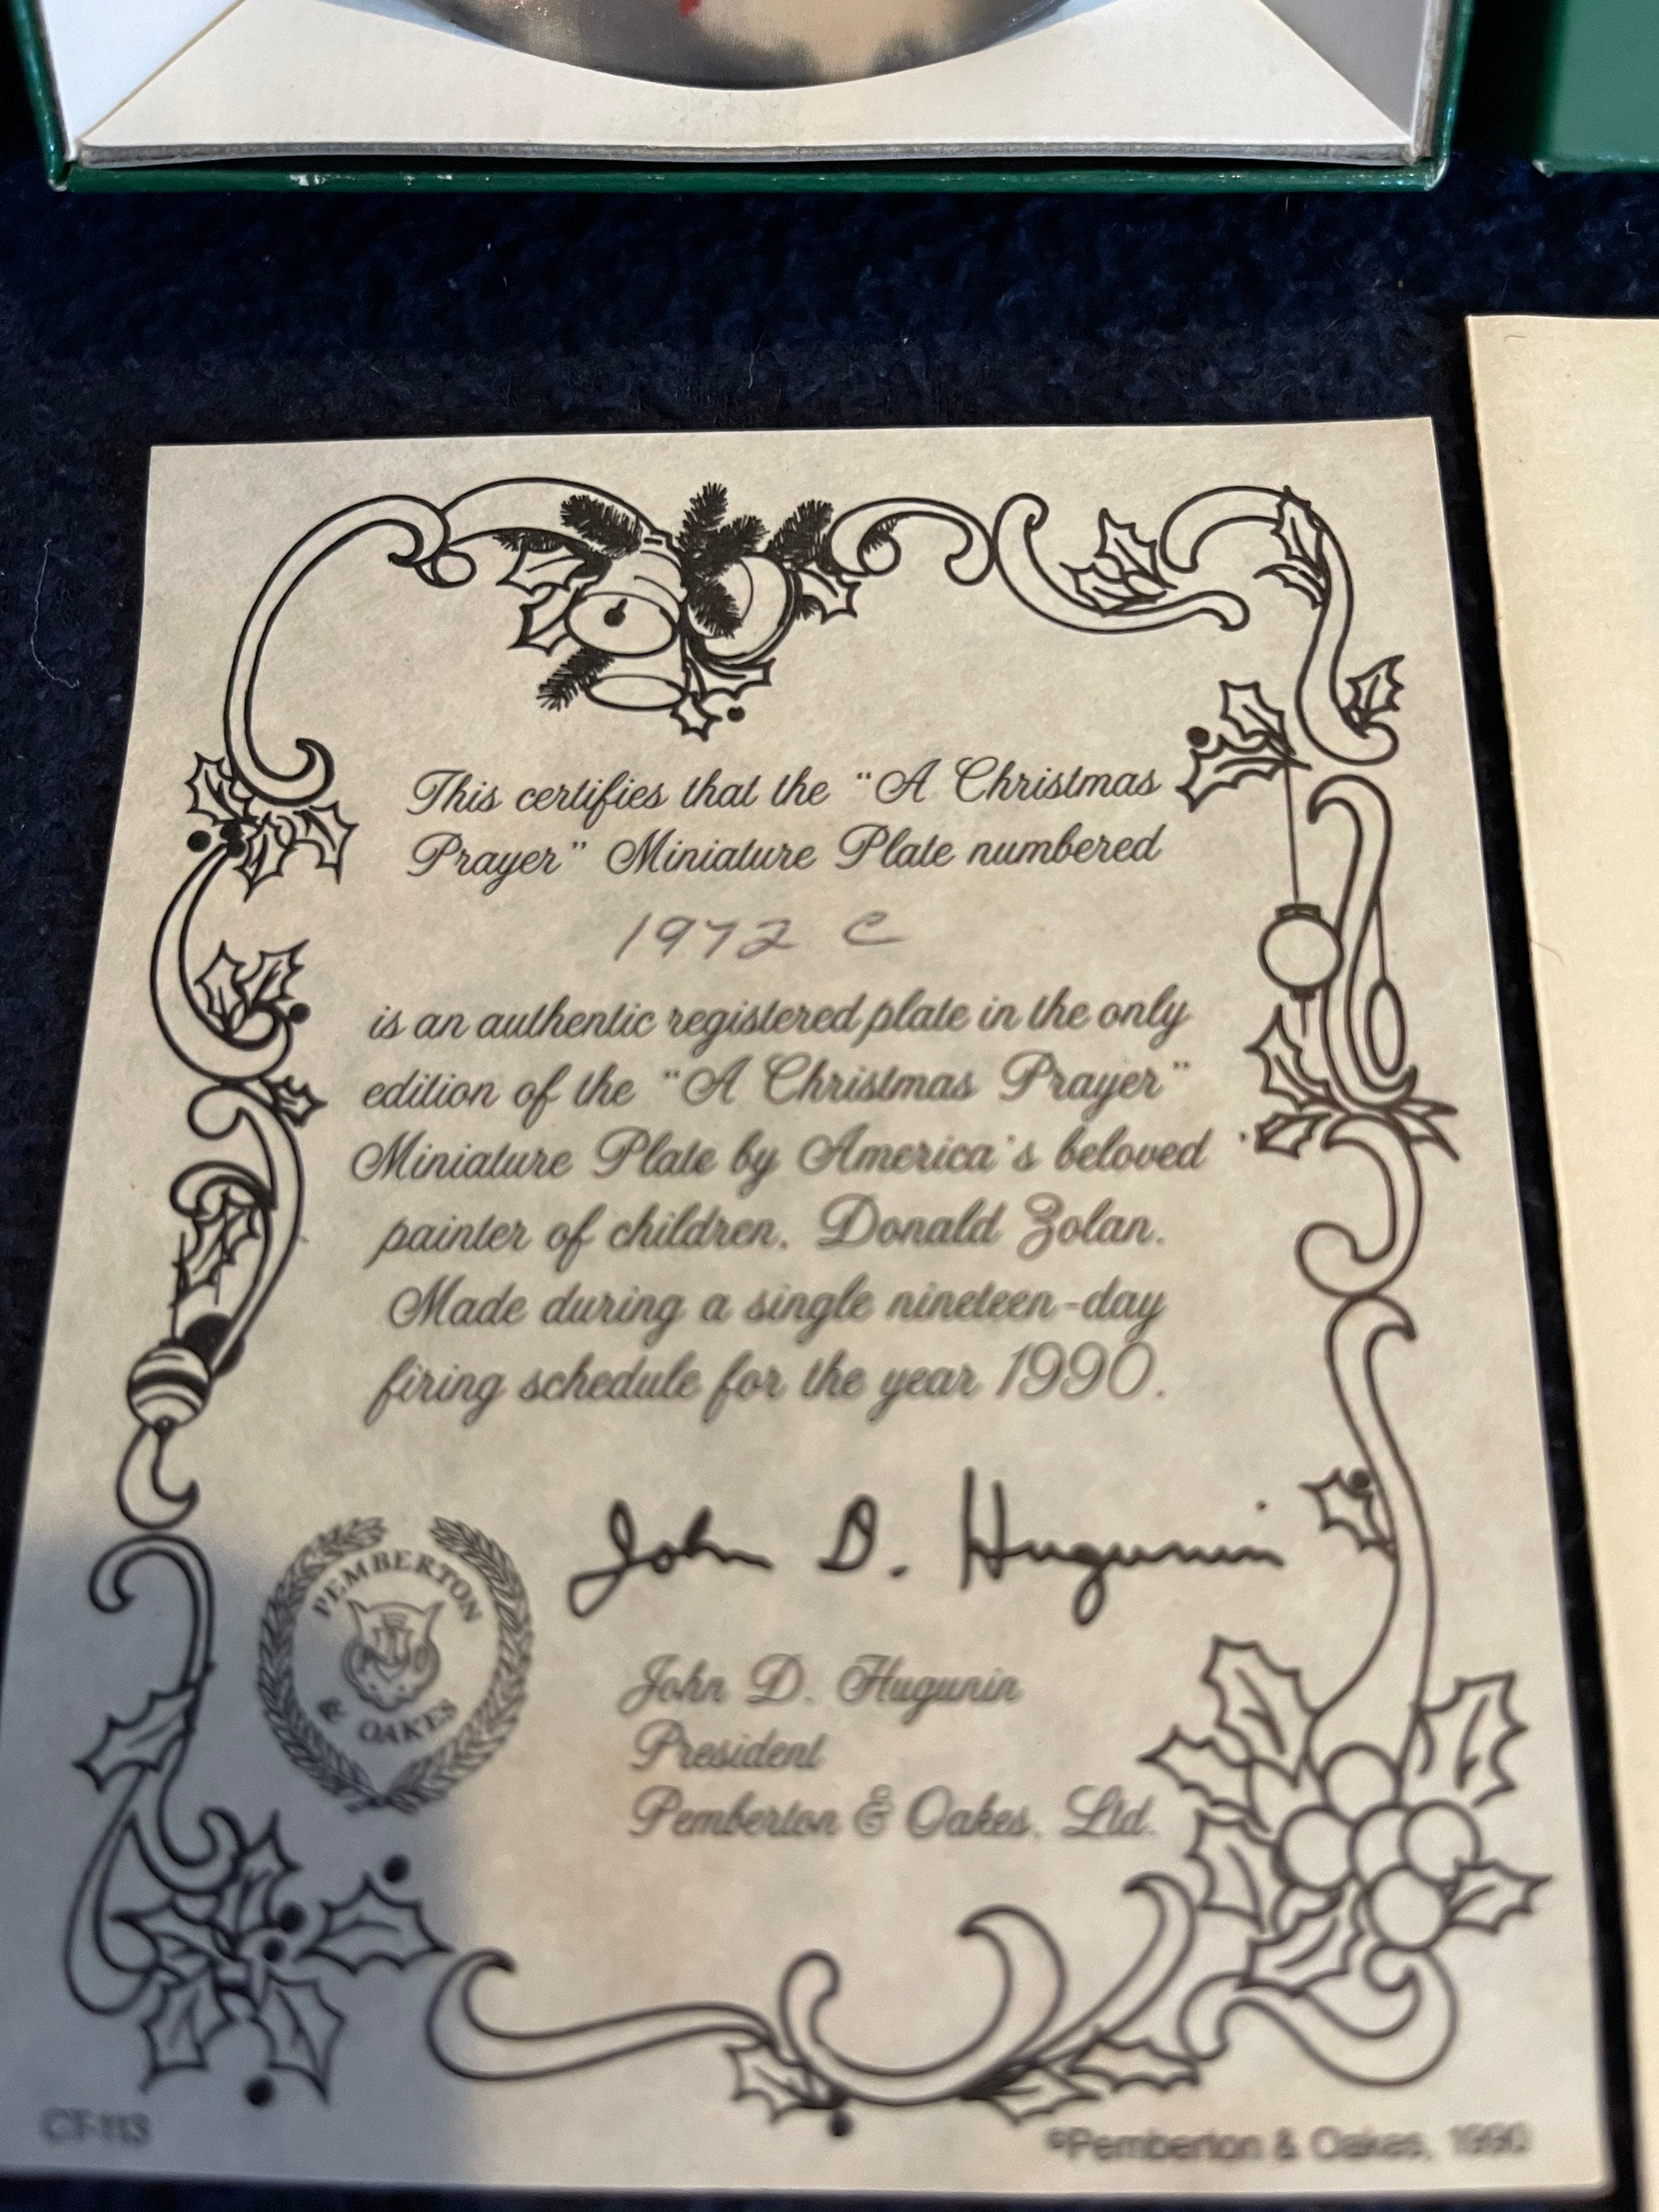 This certifies that the "A Christmas
Prayer" Miniature Plate numbered
1972 C
is an authentic registered plate in the only
edition of the "A Christmas Prayer"
Miniature Plate by America's beloved
painter of children, Donald Zolan.
Made during a single nineteen-day
firing schedule for the year 1990.
John D. Hugunin
PEMBERTON
& OAKES
John D. Hugunin
President
Pemberton & Oakes, Ltd.
CT-113
©Pemberton & Oakes, 1990